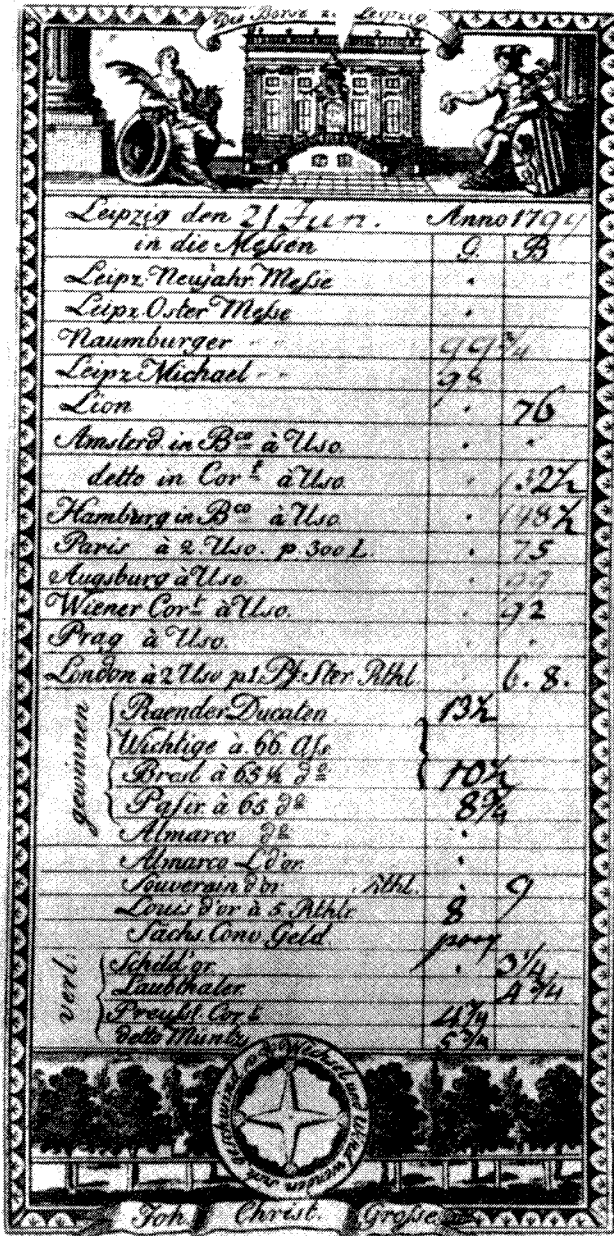 Die Börse zu Leipzig
Leipzig den 21 Jun. Anno 1799
in die Messen G. B
Leipz. Neujahr. Messe .
Leipz. Oster Messe .
Naumburger 99 3/4
Leipz Michael 98
Lion . 76
Amsterd. in Bco à Uso. . .
detto in Cort à Uso. . 132 1/2
Hamburg in Bco à Uso. . 148 1/2
Paris à 2. Uso. p. 300 L. . 75
Augsburg à Uso. .
Wiener Cort à Uso. . 92
Prag à Uso. . .
London à 2 Uso p 1. Pf. Ster. Rthl 6. 8.
gewinnen
Raender Ducaten 13 1/2
Wichtige à 66 Ass
Bresl. à 65 1/2 do 10 1/2
Passir. à 65. do 8 3/4
Almarco do .
Almarco L d'or. .
Souverain d'or. Rthl. . 9
Louis d'or à 5. Rthlr 8
Sächs. Conv. Geld.
verl:
Schild'or . 3 1/4
Laubthaler 4 3/4
Preuss. Cort 4 3/4
detto Müntz 5 3/4
Joh. Christ. Grosse